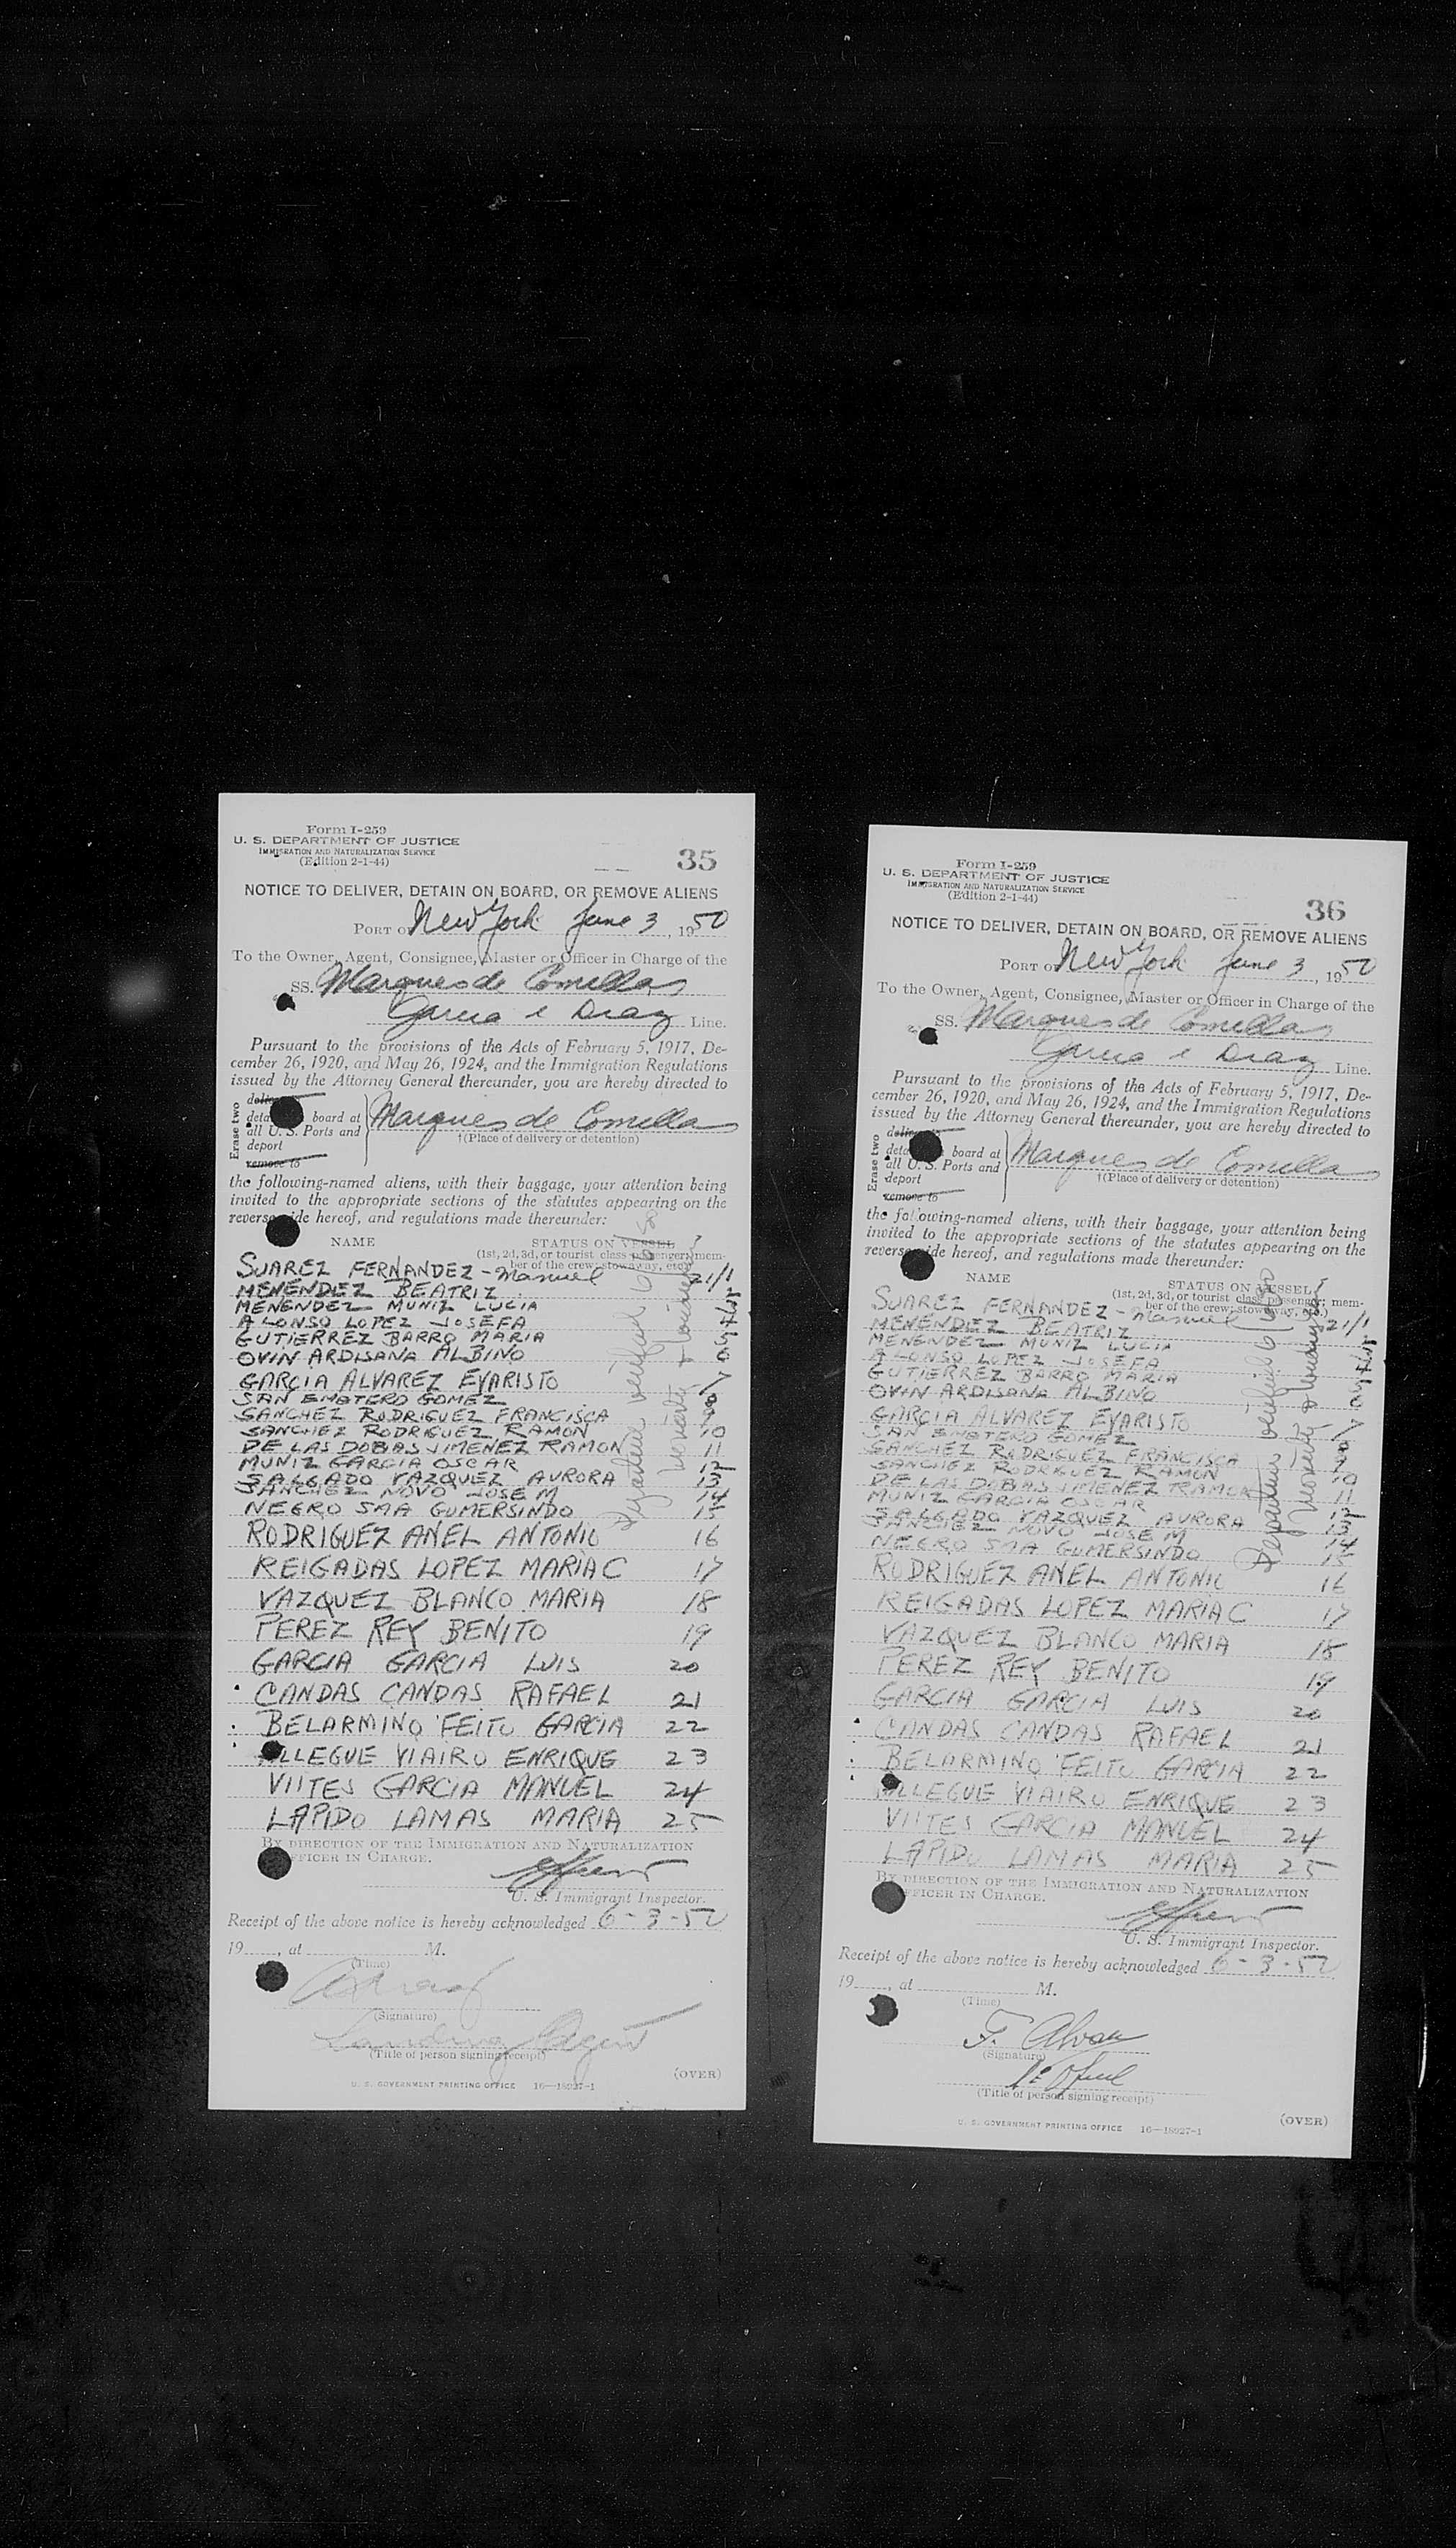 Form I-259
U. S. DEPARTMENT OF JUSTICE
IMMIGRATION AND NATURALIZATION SERVICE
(Edition 2-1-44)
35
NOTICE TO DELIVER, DETAIN ON BOARD, OR REMOVE ALIENS
PORT OF New York June 3, 1950
To the Owner, Agent, Consignee, Master or Officer in Charge of the
SS. Marques de Comillas
Garcia & Diaz Line.
Pursuant to the provisions of the Acts of February 5, 1917, De-
cember 26, 1920, and May 26, 1924, and the Immigration Regulations
issued by the Attorney General thereunder, you are hereby directed to
Erase two
board at
all U. S. Ports and
deport
remove to
Marques de Comillas
†(Place of delivery or detention)
the following-named aliens, with their baggage, your attention being
invited to the appropriate sections of the statutes appearing on the
reverse side hereof, and regulations made thereunder:
NAME STATUS ON VESSEL
(1st, 2d, 3d, or tourist class passenger; mem-
ber of the crew; stowaway, etc.)
SUAREZ FERNANDEZ - Manuel 21/1
MENENDEZ BEATRIZ
MENENDEZ MUNIZ LUCIA
ALONSO LOPEZ JOSEFA
GUTIERREZ BARRO MARIA
OVIN ARDISANA ALBINO
GARCIA ALVAREZ EVARISTO 7
SAN EMETERO GOMEZ
SANCHEZ RODRIGUEZ FRANCISCA
SANCHEZ RODRIGUEZ RAMON 10
DE LAS DOBAS JIMENEZ RAMON 11
MUNIZ GARCIA OSCAR 12
SALGADO VAZQUEZ AURORA 13
SANCHEZ NOVO JOSE M 14
NEGRO SMA GUMERSINDO 15
RODRIGUEZ ANEL ANTONIO 16
REIGADAS LOPEZ MARIA C 17
VAZQUEZ BLANCO MARIA 18
PEREZ REY BENITO 19
GARCIA GARCIA LUIS 20
CANDAS CANDAS RAFAEL 21
BELARMINO FEITO GARCIA 22
LLEGUE VIAIRO ENRIQUE 23
VIITES GARCIA MANUEL 24
LAPIDO LAMAS MARIA 25
Departure verified 6/6/50
BY DIRECTION OF THE IMMIGRATION AND NATURALIZATION
OFFICER IN CHARGE.
U. S. Immigrant Inspector.
Receipt of the above notice is hereby acknowledged 6-3-50
19____, at ____ M.
(Time)
(Signature)
Landing Agent
(Title of person signing receipt)
(OVER)
U. S. GOVERNMENT PRINTING OFFICE 16—18927-1
Form I-259
U. S. DEPARTMENT OF JUSTICE
IMMIGRATION AND NATURALIZATION SERVICE
(Edition 2-1-44)
36
NOTICE TO DELIVER, DETAIN ON BOARD, OR REMOVE ALIENS
PORT OF New York June 3, 1950
To the Owner, Agent, Consignee, Master or Officer in Charge of the
SS. Marques de Comillas
Garcia & Diaz Line.
Pursuant to the provisions of the Acts of February 5, 1917, De-
cember 26, 1920, and May 26, 1924, and the Immigration Regulations
issued by the Attorney General thereunder, you are hereby directed to
Erase two
board at
all U. S. Ports and
deport
remove to
Marques de Comillas
†(Place of delivery or detention)
the following-named aliens, with their baggage, your attention being
invited to the appropriate sections of the statutes appearing on the
reverse side hereof, and regulations made thereunder:
NAME STATUS ON VESSEL
(1st, 2d, 3d, or tourist class passenger; mem-
ber of the crew; stowaway, etc.)
SUAREZ FERNANDEZ - Manuel 21/1
MENENDEZ BEATRIZ
MENENDEZ MUNIZ LUCIA
ALONSO LOPEZ JOSEFA
GUTIERREZ BARRO MARIA
OVIN ARDISANA ALBINO
GARCIA ALVAREZ EVARISTO 7
SAN EMETERO GOMEZ
SANCHEZ RODRIGUEZ FRANCISCA
SANCHEZ RODRIGUEZ RAMON 10
DE LAS DOBAS JIMENEZ RAMON 11
MUNIZ GARCIA OSCAR 12
SALGADO VAZQUEZ AURORA 13
SANCHEZ NOVO JOSE M 14
NEGRO SMA GUMERSINDO 15
RODRIGUEZ ANEL ANTONIO 16
REIGADAS LOPEZ MARIA C 17
VAZQUEZ BLANCO MARIA 18
PEREZ REY BENITO 19
GARCIA GARCIA LUIS 20
CANDAS CANDAS RAFAEL 21
BELARMINO FEITO GARCIA 22
LLEGUE VIAIRO ENRIQUE 23
VIITES GARCIA MANUEL 24
LAPIDO LAMAS MARIA 25
Departure verified 6/6/50
BY DIRECTION OF THE IMMIGRATION AND NATURALIZATION
OFFICER IN CHARGE.
U. S. Immigrant Inspector.
Receipt of the above notice is hereby acknowledged 6-3-50
19____, at ____ M.
(Time)
(Signature)
(Title of person signing receipt)
(OVER)
U. S. GOVERNMENT PRINTING OFFICE 16—18927-1